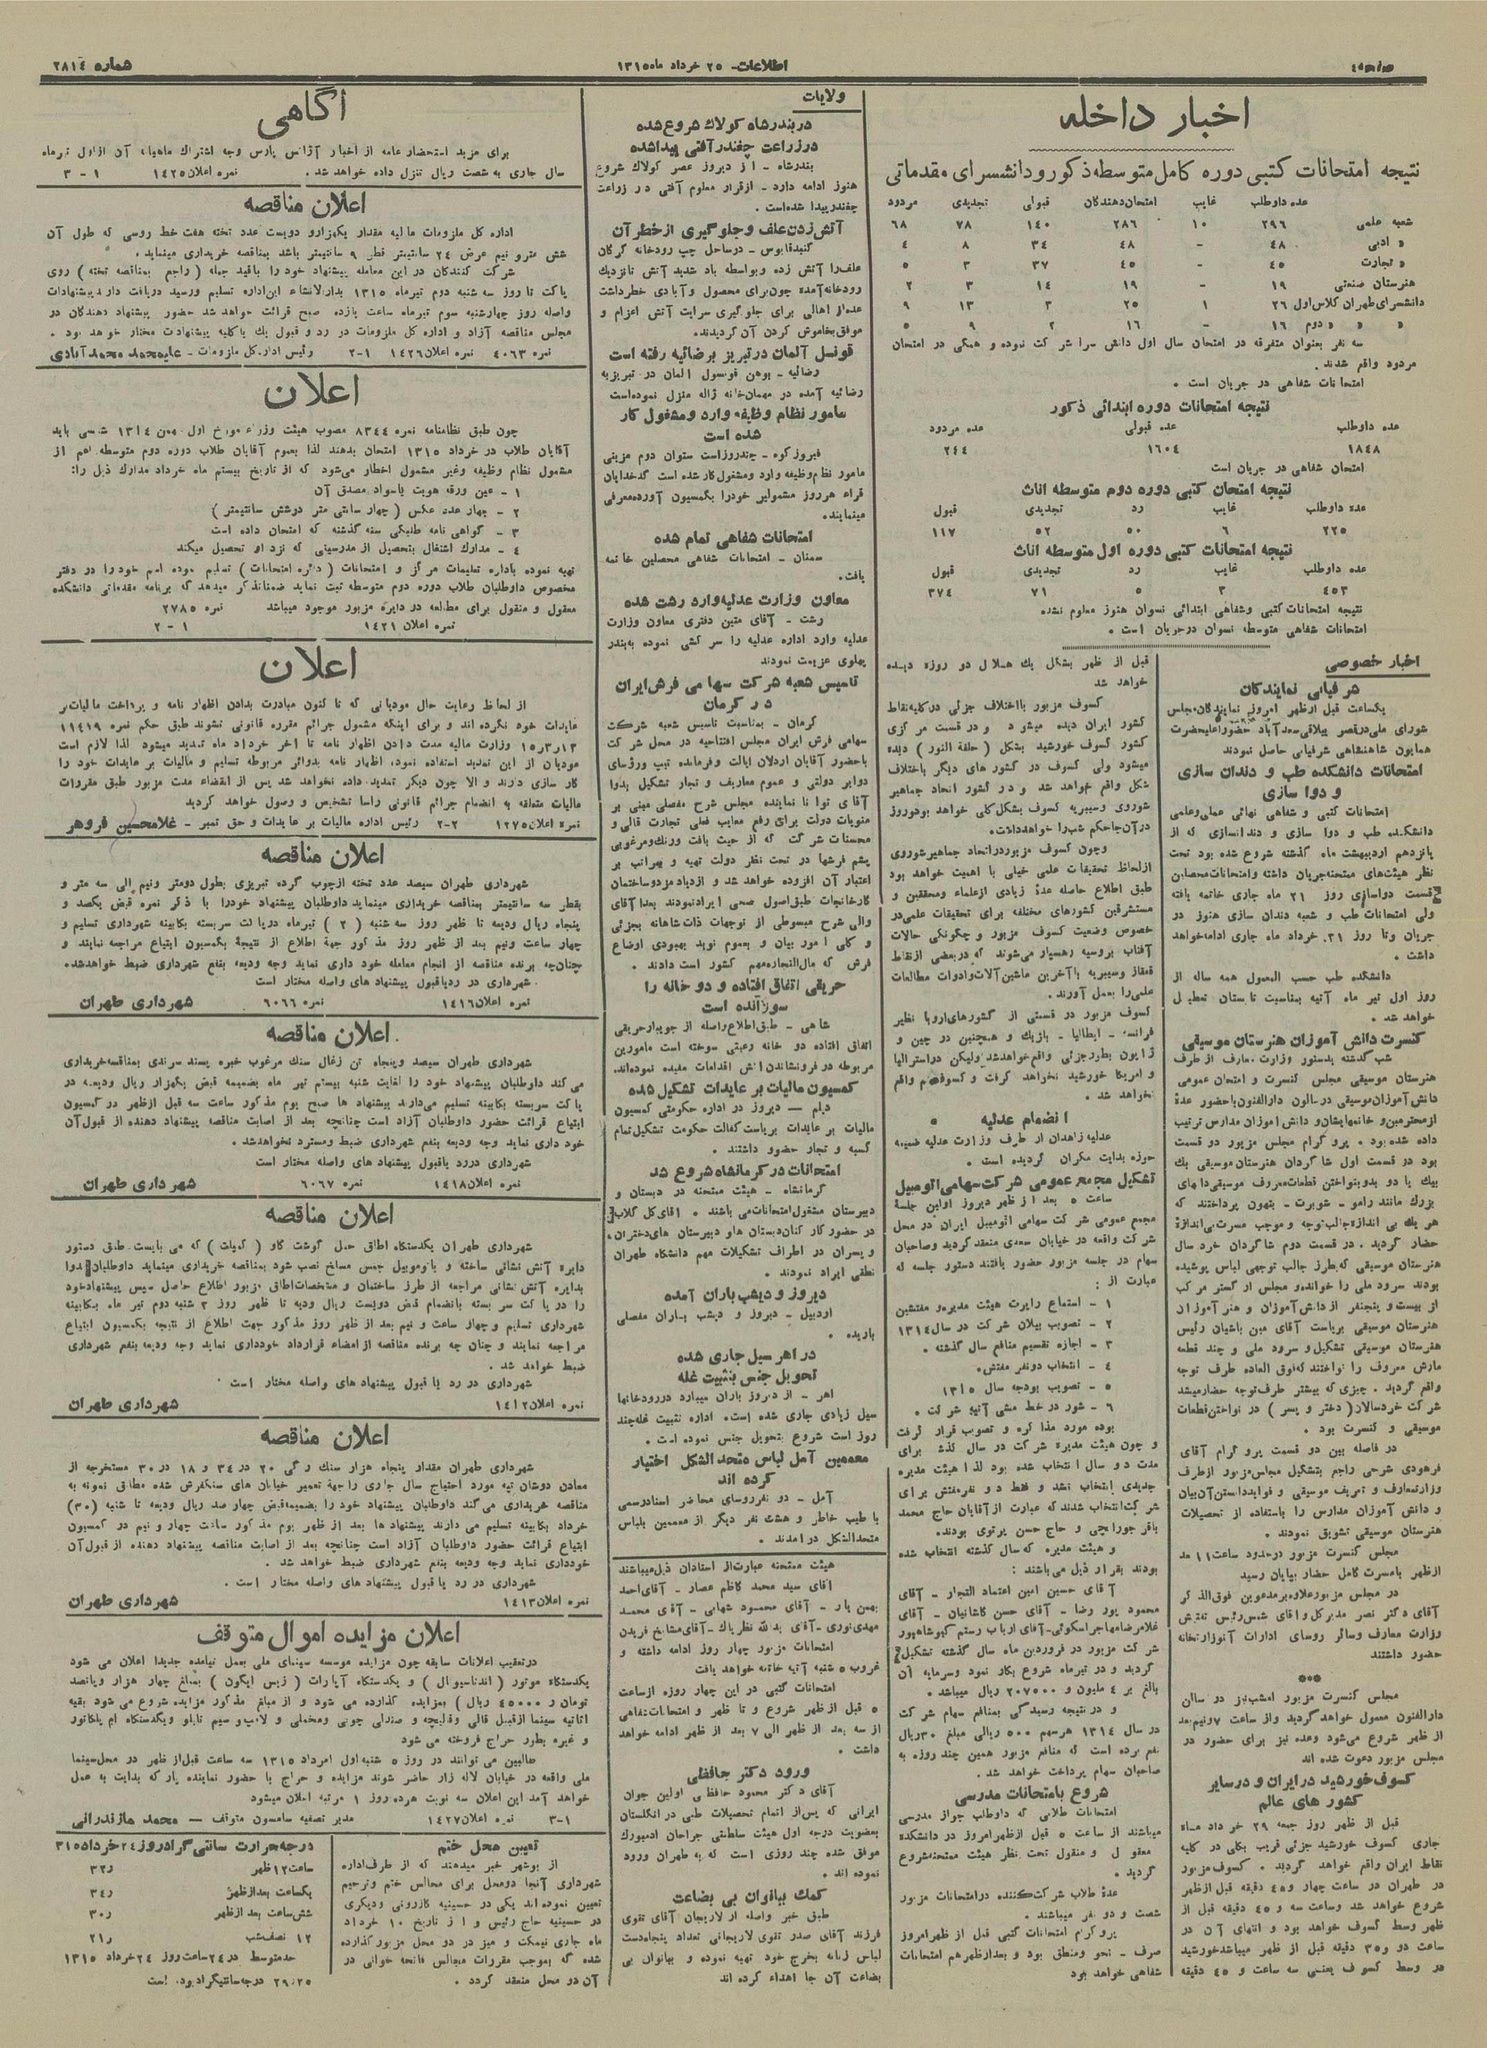 صفحه ٤
اطلاعات- ٢٥ خرداد ماه ١٣١٥
شماره ٢٨١٤
اخبار داخله
نتیجه امتحانات کتبی دوره کامل متوسطه ذکور و دانشسرای مقدماتی
عده داوطلب غایب امتحان دهندگان قبولی تجدیدی مردود
شعبه علمی ٢٩٦ ١٠ ٢٨٦ ١٤٠ ٧٨ ٦٨
« ادبی ٤٨ - ٤٨ ٣٤ ٨ ٤
« تجارت ٤٥ - ٤٥ ٣٧ ٣ ٥
هنرستان صنعتی ١٩ - ١٩ ١٤ ٣ ٢
دانشسرای طهران کلاس اول ٢٦ ١ ٢٥ ٣ ١٣ ٩
« « دوم ١٦ - ١٦ ٢ ٩ ٥
سه نفر بعنوان متفرقه در امتحان سال اول دانش سرا شرکت نموده و همگی در امتحان
مردود واقع شدند.
امتحانات شفاهی در جریان است .
نتیجه امتحانات دوره ابتدائی ذکور
عده داوطلب عده قبولی عده مردود
١٨٤٨ ١٦٠٤ ٢٤٤
امتحان شفاهی در جریان است
نتیجه امتحان کتبی دوره دوم متوسطه اناث
عده داوطلب غایب رد تجدیدی قبول
٢٢٥ ٦ ٥٠ ٥٢ ١١٧
نتیجه امتحانات کتبی دوره اول متوسطه اناث
عده داوطلب غایب رد تجدیدی قبول
٤٥٣ ٣ ٥ ٧١ ٣٧٤
نتیجه امتحانات کتبی وشفاهی ابتدائی نسوان هنوز معلوم نشده
امتحانات شفاهی متوسطه نسوان درجریان است .
اخبار خصوصی
شرفیابی نمایندگان
یکساعت قبل ازظهر امروز نمایندگان مجلس
شورای ملی درقصر ییلاقی سعدآباد حضور اعلیحضرت
همایون شاهنشاهی شرفیابی حاصل نمودند
امتحانات دانشکده طب و دندان سازی
و دوا سازی
امتحانات کتبی و شفاهی نهائی عملی وعلمی
دانشکده طب و دوا سازی و دندانسازی که از
پانزدهم اردیبهشت ماه گذشته شروع شده بود تحت
نظر هیئت‌های ممتحنه جریان داشته وامتحانات محصلین
قسمت دواسازی روز ٢١ ماه جاری خاتمه یافته
ولی امتحانات طب و شعبه دندان سازی هنوز در
جریان وتا روز ٣١ خرداد ماه جاری ادامه خواهد
داشت .
دانشکده طب حسب المعمول همه ساله از
روز اول تیر ماه آتیه بمناسبت تابستان تعطیل
خواهد شد .
کنسرت دانش آموزان هنرستان موسیقی
شب گذشته بدستور وزارت معارف از طرف
هنرستان موسیقی مجلس کنسرت و امتحان عمومی
دانش آموزان موسیقی درسالون دارالفنون باحضور عدهٔ
ازمحترمین و خانمهایشان و دانش اموزان مدارس ترتیب
داده شده بود . پروگرام مجلس مزبور دو قسمت
بود در قسمت اول شاگردان هنرستان موسیقی یك
بیك یا دو بدو بنواختن قطعات معروف موسیقی دانهای
بزرگ مانند رامو - شوبرت - بتهون پرداختند که
هریك بی اندازه جالب توجه و موجب مسرت بی اندازهٔ
حضار گردید . در قسمت دوم شاگردان خرد سال
هنرستان موسیقی که بطرز جالب توجهی لباس پوشیده
بودند سرود ملی را خوانده و مجلس ارکستر مرکب
از بیست و پنجنفر از دانش آموزان و هنرآموزان
هنرستان موسیقی بریاست آقای مین باشیان رئیس
هنرستان موسیقی تشکیل و سرود ملی و چند قطعه
مارش معروف را نواختند که فوق العاده طرف توجه
واقع گردید . چیزی که بیشتر طرف توجه حضار میشد
شرکت خردسالان (دختر و پسر) در نواختن قطعات
موسیقی و کنسرت بود .
در فاصله بین دو قسمت پروگرام آقای
فرهودی شرحی راجع بتشکیل مجلس مزبور ازطرف
وزارت معارف و تعریف موسیقی و فوایددانستن آن بیان
و دانش آموزان مدارس را باستفاده از تحصیلات
هنرستان موسیقی تشویق نمودند .
مجلس کنسرت مزبور درحدود ساعت ١١ بعد
ازظهر بامسرت کامل حضار بپایان رسید
در مجلس مزبور علاوه بر مدعوین فوق الذکر
آقای دکتر نصر مدیرکل واقای شمس رئیس تفتیش
وزارت معارف وسائر روسای ادارات آنوزارتخانه
حضور داشتند
***
مجلس کنسرت مزبور امشب نیز در سالن
دارالفنون معمول خواهد گردید واز ساعت ٧ ونیم بعد
از ظهر شروع می‌شود وعده نیز برای حضور در
مجلس مزبور دعوت شده اند
کسوف خورشید در ایران و در سایر
کشور های عالم
قبل از ظهر روز جمعه ٢٩ خرداد ماه
جاری کسوف خورشید جزئی قریب بکلی در کلیه
نقاط ایران واقع خواهد گردید . کسوف مزبور
در طهران در ساعت چهار و ٤٥ دقیقه قبل ازظهر
شروع خواهد شد وساعت سه و ٤٥ دقیقه قبل از
ظهر وسط کسوف خواهد بود و انتهای آن در
ساعت دو و ٣٥ دقیقه قبل از ظهر میباشد خورشید
در وسط کسوف یعنی سه ساعت و ٤٥ دقیقه
قبل از ظهر بشکل یك هلال دو روزه دیده
خواهد شد
کسوف مزبور بااختلاف جزئی در کلیه نقاط
کشور ایران دیده میشود و در قسمت مرکزی
کشور کسوف خورشید بشکل ( حلقة النور ) دیده
میشود ولی کسوف در کشور های دیگر باختلاف
شکل واقع خواهد شد و در کشور اتحاد جماهیر
شوروی وسیبریه کسوف بشکل کلی خواهد بود و روز
در آن جا حکم شب را خواهد داشت.
وچون کسوف مزبور در اتحاد جماهیر شوروی
ازلحاظ تحقیقات علمی خیلی با اهمیت خواهد بود
طبق اطلاع حاصله عدهٔ زیادی ازعلماء ومحققین و
مستشرقین کشورهای مختلفه برای تحقیقات علمی در
خصوص وضعیت کسوف مزبور و چگونگی حالات
آفتاب بروسیه رهسپار می‌شوند که در بعضی از نقاط
قفقاز وسیبریه با آخرین ماشین آلات وادوات مطالعات
علمی را بعمل آورند .
کسوف مزبور در قسمتی از کشورهای اروپا نظیر
فرانسه - ایطالیا - بلژیك و همچنین در چین و
ژاپون بطور جزئی واقع خواهد شد ولیکن در استرالیا
و امریکا خورشید نخواهد گرفت و کسوف هم واقع
نخواهد شد .
انضمام عدلیه
عدلیه زاهدان از طرف وزارت عدلیه ضمیمه
حوزه بدایت مکران گردیده است .
تشکیل مجمع عمومی شرکت سهامی اتومبیل
ساعت ٥ بعد از ظهر دیروز اولین جلسهٔ
مجمع عمومی شرکت سهامی اتومبیل ایران در محل
شرکت واقعه در خیابان سعدی منعقد گردید وصاحبان
سهام در جلسه مزبور حضور یافتند دستور جلسه که
عبارت از :
١ - استماع راپرت هیئت مدیره و مفتشین
٢ - تصویب بیلان شرکت در سال ١٣١٤
٣ - اجازه تقسیم منافع سال گذشته .
٤ - انتخاب دونفر مفتش.
٥ - تصویب بودجه سال ١٣١٥
٦ - شور در خط مشی آتیه شرکت .
بوده مورد مذاکره و تصویب قرار گرفت
و چون هیئت مدیره شرکت در سال گذشته برای
مدت دو سال انتخاب شده بود لذا هیئت مدیره
جدیدی انتخاب نشد و فقط دو نفر مفتش برای
شرکت انتخاب شدند که عبارت از آقایان حاج محمد
باقر جورابچی و حاج حسن پرتوی بودند.
و هیئت مدیره که سال گذشته انتخاب شده
بودند بقرار ذیل می‌باشند :
آقای حسین امین اعتماد التجار - آقای
محمود پور رضا - آقای حسن کاشانیان - آقای
غلامرضا مهاجر اسکوئی - آقای ارباب رستم کیوشاهپور
شرکت مزبور در فروردین ماه سال گذشته تشکیل
گردید و در تیرماه شروع بکار نمود وسرمایه آن
بالغ بر ٤ ملیون و ٢٠٧٠٠٠ ریال میباشد .
و در نتیجه رسیدگی بمنافع سهام شرکت
در سال ١٣١٤ هر سهم ٥٠٠ ریالی مبلغ ٣٠ ریال
نفع برده است که منافع مزبور همین چند روزه به
صاحبان سهام پرداخت خواهد شد .
شروع بامتحانات مدرسی
امتحانات طلابی که داوطلب جواز مدرسی
میباشند از ساعت ٥ قبل ازظهر امروز در دانشکده
معقول و منقول تحت نظر هیئت ممتحنه شروع
گردید .
عدهٔ طلاب شرکت کننده در امتحانات مزبور
شصت و دو نفر میباشند .
پروگرام امتحانات کتبی قبل از ظهر امروز
صرف - نحو ومنطق بود و بعداز ظهر هم امتحانات
شفاهی خواهد بود
ولایات
در بندرشاه کولاك شروع شده
در زراعت چغندر آفتی پیدا شده
بندرشاه - از دیروز عصر کولاك شروع
هنوز ادامه دارد - ازقرار معلوم آفتی در زراعت
چغندر پیدا شده است .
آتش زدن علف و جلوگیری از خطر آن
گنبدقابوس - در ساحل چپ رودخانه گرگان
علف را آتش زده وبواسطه باد شدید آتش تا نزدیك
رودخانه آمده چون برای محصول و آبادی خطر داشت
عده از اهالی برای جلوگیری سرایت آتش اعزام و
موفق بخاموش کردن آن گردیدند.
قونسل آلمان در تبریز برضائیه رفته است
رضائیه - بوهن قونسول المان در تبریز به
رضائیه آمده در مهمان خانه ژاله منزل نموده است
مامور نظام وظیفه وارد و مشغول کار
شده است
فیروزکوه - چندروز است ستوان دوم مزینی
مامور نظام وظیفه وارد ومشغول کار شده است کدخدایان
قراء هرروز مشمولین خودرا بکمسیون آورده معرفی
مینمایند.
امتحانات شفاهی تمام شده
سمنان - امتحانات شفاهی محصلین خاتمه
یافت.
معاون وزارت عدلیه وارد رشت شده
رشت - آقای متین دفتری معاون وزارت
عدلیه وارد اداره عدلیه را سرکشی نموده به بندر
پهلوی عزیمت نمودند
تاسیس شعبه شرکت سهامی فرش ایران
در کرمان
کرمان - بمناسبت تاسیس شعبه شرکت
سهامی فرش ایران مجلس افتتاحیه در محل شرکت
باحضور آقایان اردلان ایالت و فرمانده تیپ وروسای
دوایر دولتی و عموم معاریف و تجار تشکیل بدوا
آقای توانا نماینده مجلس شرح مفصلی مبنی بر
منویات دولت برای رفع معایب فعلی تجارت قالی و
محسنات شرکت که از حیث بافت ورنگ ومرغوبی
پشم فرشها در تحت نظر دولت تهیه و بمراتب بر
اعتبار آن افزوده خواهد شد و ازدیاد مزد و ساختمان
کارخانجات طبق اصول صحی ایراد نمودند بعدا آقای
والی شرح مبسوطی از توجهات ذات شاهانه بجزئی
و کلی امور بیان و بعموم نوید بهبودی اوضاع
فرش که مال التجاره مهم کشور است دادند .
حریقی اتفاق افتاده و دو خانه را
سوزانده است
شاهی - طبق اطلاع واصله از جویبار حریقی
اتفاق افتاده دو خانه رعیتی سوخته است مامورین
مربوطه در فرونشاندن آتش اقدامات مفیده نموده‌اند.
کمسیون مالیات بر عایدات تشکیل شده
دیلم - دیروز در اداره حکومتی کمسیون
مالیات بر عایدات بریاست کفالت حکومت تشکیل تمام
کسبه و تجار حضور داشتند .
امتحانات در کرمانشاه شروع شد
کرمانشاه - هیئت ممتحنه در دبستان و
دبیرستان مشغول امتحانات می باشند . اقای کل گلاب
در حضور کارکنان دبستان ها و دبیرستان های دختران
و پسران در اطراف تشکیلات مهم دانشگاه طهران
نطقی ایراد نمودند .
دیروز و دیشب باران آمده
اردبیل - دیروز و دیشب باران مفصلی
باریده .
در اهر سیل جاری شده
تحویل جنس بتثبیت غله
اهر - از دیروز باران میبارد در رودخانها
سیل زیادی جاری شده است. اداره تثبیت غله چند
روز است شروع بتحویل جنس نموده است .
معممین آمل لباس متحدالشکل اختیار
کرده اند
آمل - دو نفر روسای محاضر اسناد رسمی
با طیب خاطر و هشت نفر دیگر از معممین بلباس
متحدالشکل در امدند .
هیئت ممتحنه عبارت از استادان ذیل میباشند
آقای سید محمد کاظم عصار - آقای احمد
بهمن یار - آقای محمود شهابی - آقای محمد
مهدی نوری - آقای یدالله نظرپاك - آقای مشایخ فریدن
امتحانات مزبور چهار روز ادامه داشته و
غروب ٥ شنبه آتیه خاتمه خواهد یافت
امتحانات کتبی در این چهار روزه از ساعت
٥ قبل از ظهر شروع و تا ظهر و امتحانات شفاهی
از سه بعد از ظهر الی ٧ بعد از ظهر ادامه خواهد
داشت .
ورود دکتر حافظی
آقای دکتر محمود حافظی اولین جوان
ایرانی که پس از اتمام تحصیلات طبی در انگلستان
بعضویت درجه اول هیئت سلطنتی جراحان ادمبورك
موفق شده چند روزی است که به طهران ورود
نموده اند .
کمك بیانوان بی بضاعت
طبق خبر واصله از لاریجان آقای تقوی
فرزند آقای صدر تقوی لاریجانی تعداد پنجاه دست
لباس زنانه بخرج خود تهیه نموده و ببانوان بی
بضاعت آن جا اهداء کرده اند
آگاهی
برای مزید استحضار عامه از اخبار آژانس پارس وجه اشتراك ماهیانه آن ازاول تیرماه
سال جاری به شصت ریال تنزل داده خواهد شد . نمره اعلان ١٤٢٥ ١ - ٣
اعلان مناقصه
اداره کل ملزومات مالیه مقدار یکهزارو دویست عدد تخته هفت خط روسی که طول آن
شش مترو نیم عرض ٢٤ سانتیمتر قطر ٩ سانتیمتر باشد بمناقصه خریداری مینماید.
شرکت کنندگان در این معامله پیشنهاد خود را باقید جمله ( راجع بمناقصه تخته ) روی
پاکت تا روز سه شنبه دوم تیرماه ١٣١٥ بدارالانشاء این اداره تسلیم ورسید دریافت دارند پیشنهادات
واصله روز چهارشنبه سوم تیرماه ساعت یازده صبح قرائت خواهد شد حضور پیشنهاد دهندگان در
مجلس مناقصه آزاد و اداره کل ملزومات در رد و قبول یك یا کلیه پیشنهادات مختار خواهد بود .
نمره ٤٠٦٣ نمره اعلان ١٤٢٦ ١-٢ رئیس اداره کل ملزومات - علیمحمد محمدآبادی
اعلان
چون طبق نظامنامه نمره ٨٣٤٤ مصوب هیئت وزراء مورخ اول بهمن ١٣١٤ شمسی باید
آقایان طلاب در خرداد ١٣١٥ امتحان بدهند لذا بعموم آقایان طلاب دوره دوم متوسطه اعم از
مشمول نظام وظیفه وغیر مشمول اخطار می‌شود که از تاریخ بیستم ماه خرداد مدارك ذیل را:
١ - عین ورقه هویت یاسواد مصدق آن
٢ - چهار عدد عکس ( چهار سانتی متر درشش سانتیمتر )
٣ - گواهی نامه طلبگی سنه گذشته که امتحان داده است
٤ - مدارك اشتغال بتحصیل از مدرسینی که نزد او تحصیل میکند
تهیه نموده باداره تعلیمات مرکز و امتحانات ( دائره امتحانات ) تسلیم نموده اسم خودرا در دفتر
مخصوص داوطلبان طلاب دوره دوم متوسطه ثبت نماید ضمنا تذکر میدهد که برنامه مقدماتی دانشکده
معقول و منقول برای مطالعه در دایره مزبور موجود میباشد نمره ٢٧٨٥
نمره اعلان ١٤٢١ ١ - ٢
اعلان
از لحاظ رعایت حال مودیانی که تا کنون مبادرت بدادن اظهار نامه و پرداخت مالیات بر
عایدات خود نکرده اند و برای اینکه مشمول جرائم مقرره قانونی نشوند طبق حکم نمره ١١٤١٩
١٣ر٣ر١٥ وزارت مالیه مدت دادن اظهار نامه تا آخر خرداد ماه تمدید میشود لذا لازم است
مودیان از این تمدید استفاده نموده اظهار نامه بدوائر مربوطه تسلیم و مالیات بر عایدات خود را
کارسازی دارند و الا چون دیگر تمدید داده نخواهد شد پس از انقضاء مدت مزبور طبق مقررات
مالیات متعلقه به انضمام جرائم قانونی راسا تشخیص و وصول خواهد گردید
نمره اعلان ١٢٧٥ ٢-٢ رئیس اداره مالیات بر عایدات و حق تمبر - غلامحسین فروهر
اعلان مناقصه
شهرداری طهران سیصد عدد تخته ازچوب گرده تبریزی بطول دومتر ونیم الی سه متر و
بقطر سه سانتیمتر بمناقصه خریداری مینماید داوطلبان پیشنهاد خودرا با ذکر نمره قبض یکصد و
پنجاه ریال ودیعه تا ظهر روز سه شنبه (٢) تیرماه در پاکت سربسته بکابینه شهرداری تسلیم و
چهار ساعت ونیم بعد از ظهر روز مذکور جهة اطلاع از نتیجهٔ بکمسیون ابتیاع مراجعه نمایند و
چنان چه برنده مناقصه از انجام معامله خود داری نماید وجه ودیعه بنفع شهرداری ضبط خواهد شد.
شهرداری در رد یاقبول پیشنهاد های واصله مختار است
نمره اعلان ١٤١٦ نمره ٦٠٦٦ شهرداری طهران
اعلان مناقصه
شهرداری طهران سیصد وپنجاه تن زغال سنك مرغوب خبره پسند سرندی بمناقصه خریداری
می کند داوطلبان پیشنهاد خود را لغایت شنبه بیستم تیر ماه بضمیمه قبض یکهزار ریال ودیعه در
پاکت سربسته بکابینه تسلیم می‌دارند پیشنهاد ها صبح یوم مذکور ساعت سه قبل ازظهر در کمسیون
ابتیاع قرائت حضور داوطلبان آزاد است چنانچه بعد از اصابت مناقصه پیشنهاد دهنده از قبول آن
خود داری نماید وجه ودیعه بنفع شهرداری ضبط ومسترد نخواهد شد.
شهرداری دررد یاقبول پیشنهاد های واصله مختار است
نمره اعلان ١٤١٨ نمره ٦٠٦٧ شهرداری طهران
اعلان مناقصه
شهرداری طهران یکدستگاه اطاق حمل گوشت گاو ( کمیات ) که می بایست طبق دستور
دایره آتش نشانی ساخته و با توموبیل جمس مسلخ نصب شود بمناقصه خریداری مینماید داوطلبان بدوا
بدایره آتش نشانی مراجعه از طرز ساختمان و مشخصات اطاق مزبور اطلاع حاصل سپس پیشنهاد خود
را در پاکت سر بسته بانضمام قبض دویست ریال ودیعه تا ظهر روز ٣ شنبه دوم تیر ماه بکابینه
شهرداری تسلیم و چهار ساعت و نیم بعد از ظهر روز مذکور جهت اطلاع از نتیجه بکمسیون ابتیاع
مراجعه نمایند و چنان چه برنده مناقصه از امضاء قرارداد خودداری نماید وجه ودیعه بنفع شهرداری
ضبط خواهد شد .
شهرداری در رد یا قبول پیشنهاد های واصله مختار است .
نمره اعلان ١٤١٢ شهرداری طهران
اعلان مناقصه
شهرداری طهران مقدار پنجاه هزار سنك رگی ٢٠ در ٣٤ و ١٨ در ٣٠ مستخرجه از
معادن دوشان تپه مورد احتیاج سال جاری راجهة تعمیر خیابان های سنگفرش شده مطابق نمونه به
مناقصه خریداری می‌کند داوطلبان پیشنهاد خود را بضمیمه قبض چهار صد ریال ودیعه تا شنبه (٣٠)
خرداد بکابینه تسلیم می دارند پیشنهاد ها بعد از ظهر یوم مذکور ساعت چهار و نیم در کمسیون
ابتیاع قرائت حضور داوطلبان آزاد است چنانچه بعد از اصابت مناقصه پیشنهاد دهنده از قبول آن
خودداری نماید وجه ودیعه بنفع شهرداری ضبط خواهد شد .
شهرداری در رد یا قبول پیشنهاد های واصله مختار است .
نمره اعلان ١٤١٣ شهرداری طهران
اعلان مزایده اموال متوقف
در تعقیب اعلانات سابقه چون مزایده موسسه سینمای ملی بعمل نیامده جدیدا اعلان می شود
یکدستگاه موتور (اندناسیوال ) و یکدستگاه آپارات ( زیس ایگون ) بمبلغ چهار هزار وپانصد
تومان ر ٤٥٠٠٠ ریال ) بمزایده گذارده می شود و از مبلغ مذکور مزایده شروع می شود بقیه
اثاثیه سینما ازقبیل قالی وقالیچه و صندلی چوبی ومخملی و لامپ و سیم تابلو ویکدستگاه ام پلکاتور
و غیره بطور حراج فروخته می شود
طالبین می توانند در روز ٥ شنبه اول امرداد ١٣١٥ سه ساعت قبل از ظهر در محل سینما
ملی واقعه در خیابان لاله زار حاضر شوند مزایده و حراج با حضور نماینده پارکه بدایت به عمل
خواهد آمد این اعلان سه نوبت هرده روز ١ مرتبه اعلان میشود
٣-١ نمره اعلان ١٤٢٧ مدیر تصفیه سامسون متوقف - محمد مازندرانی
تعیین محل ختم
از بوشهر خبر میدهند که از طرف اداره
شهرداری آنجا دومحل برای مجالس ختم وترحیم
تعیین نموده اند یکی در حسینیه کازرونی ودیگری
در حسینیه حاج رئیس و از تاریخ ١٠ خرداد
ماه جاری نیمکت و میز در دو محل مزبور گذارده
شده که بموجب مقررات مجالس فاتحه خوانی در
آن دو محل منعقد گردد .
درجه حرارت سانتی گراد روز ٢٤ خرداد ٣١٥
ساعت ١٢ ظهر ٣٢ر
یکساعت بعد از ظهر ٣٤ر
شش ساعت بعد ازظهر ٣٠ر
١٢ نصف شب ٢١ر
حد متوسط در ٢٤ ساعت روز ٢٤ خرداد ١٣١٥
٢٩/٢٥ درجه سانتیگراد بوده است